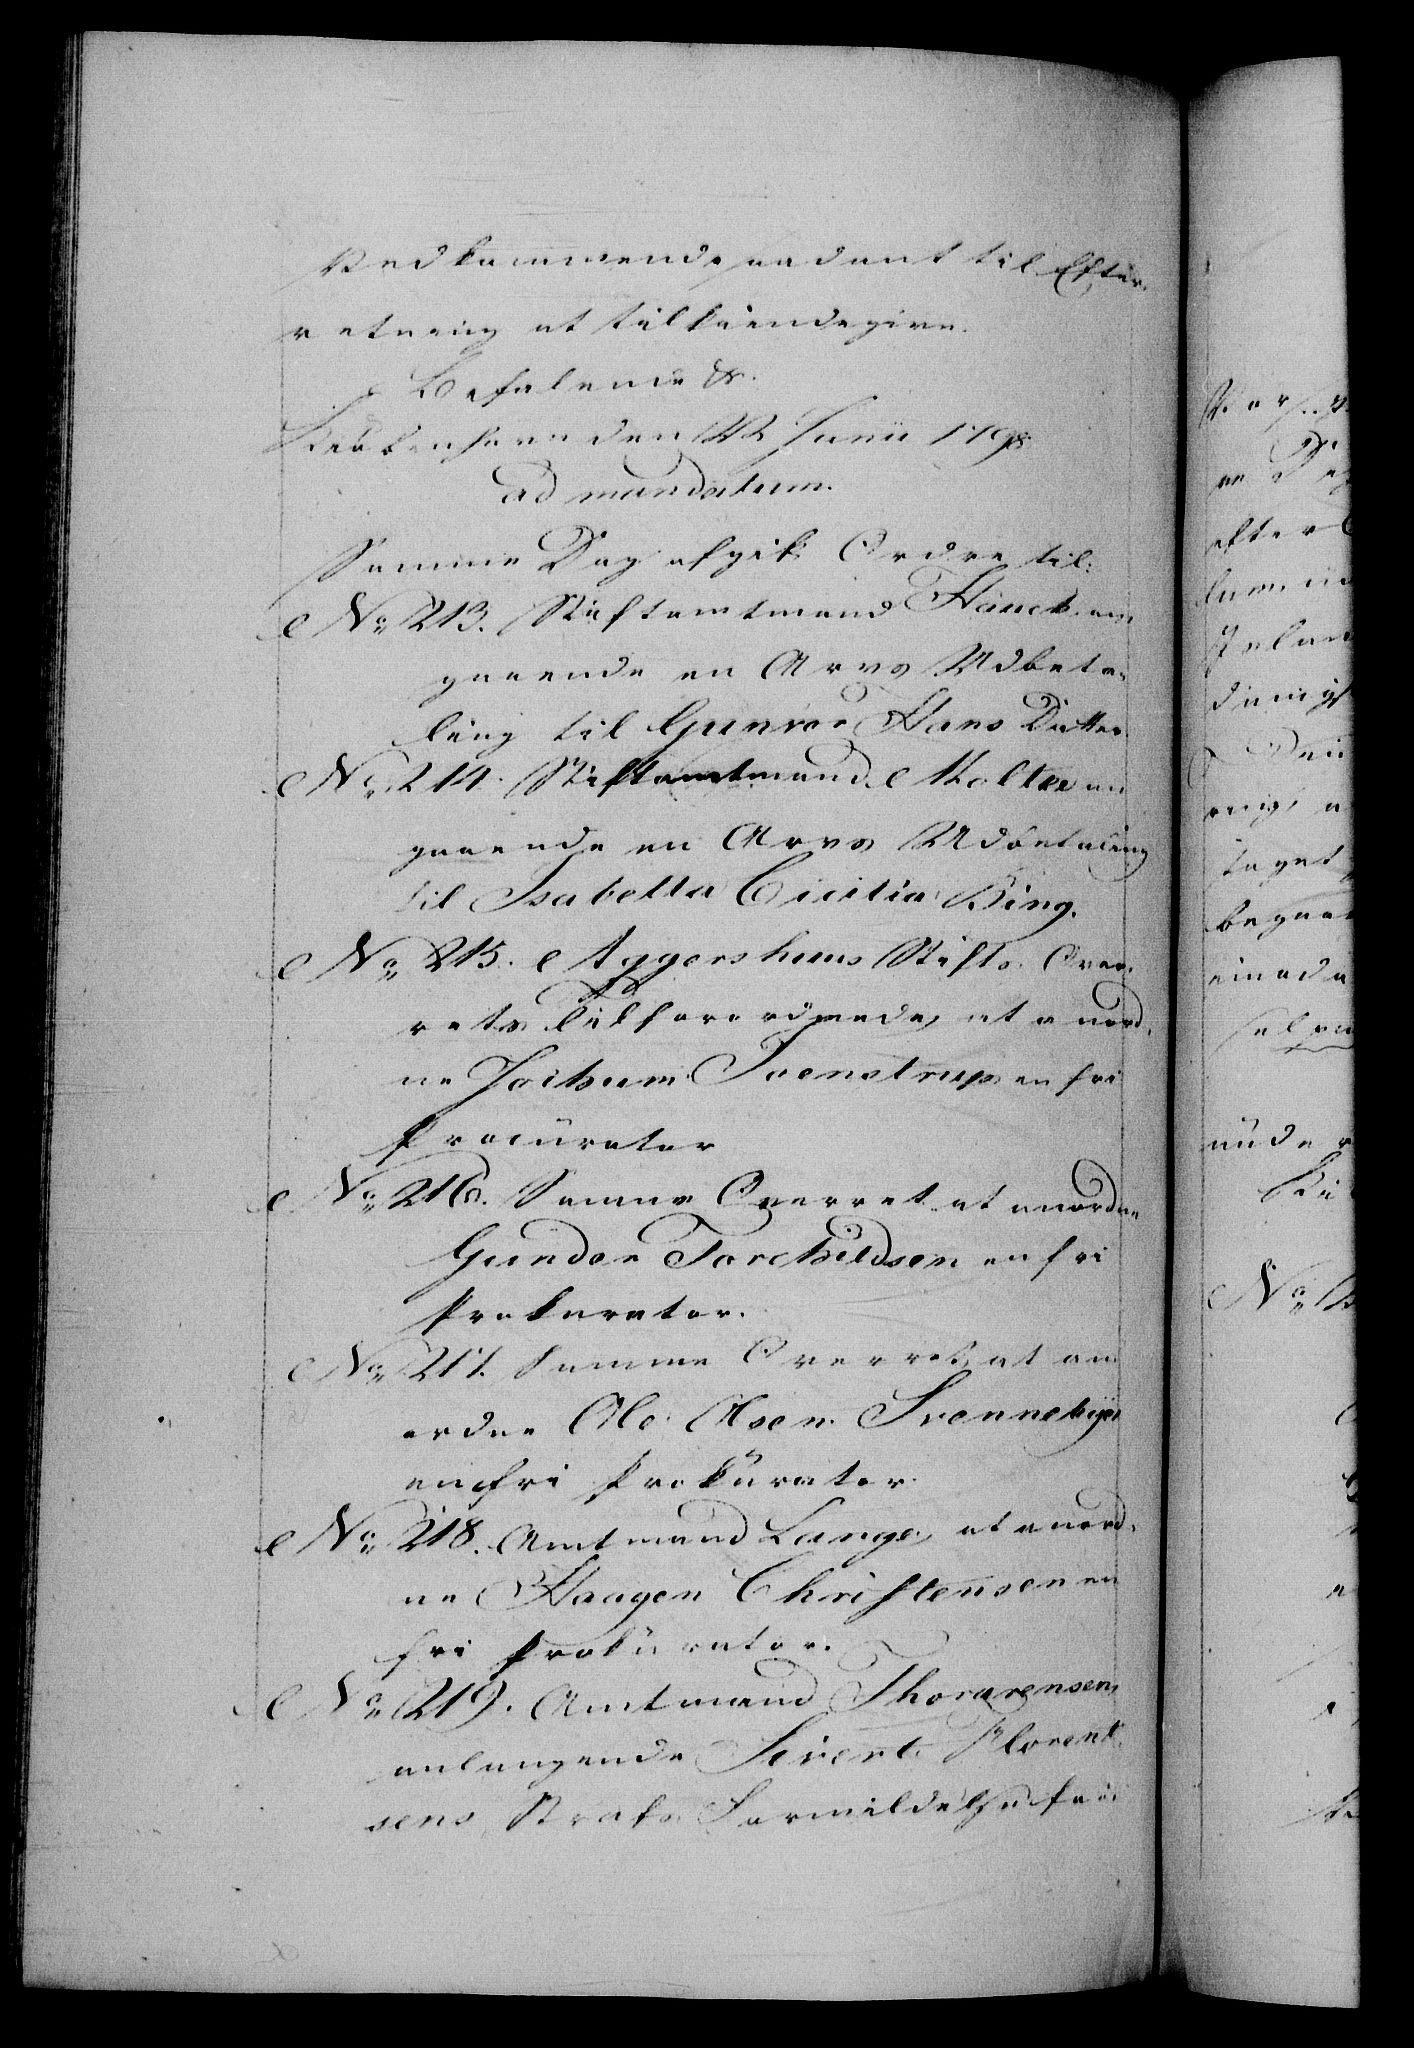 Vedkommende saadant til Efter-
retning at tilkiendegive.
Befalende &.
Kiøbenhavn den 22 Junii 1798
ad mandatum.
Samme Dag afgik Ordre til:
No 213. Stiftamtmand Hauch an-
gaaende en Arvs Udbeta-
ling til Gunroe Hans Datter
No 214. Stiftamtmand Moltke an
gaaende en Arvs Udbetaling
til Isabella Cicilia King.
No 215. Aggershuus Stifts Over-
rets Tilforordnede, at anord-
ne Jochum Svenstrup en fri
Procurator
No 216. Samme Overret at anordne
Gunder Torchildsen en fri
Prokurator.
No 217. Samme Overret, at an
ordne Ole Olsen Svennebye
en fri Prokurator.
No 218. Amtmand Lange, at anord-
ne Haagen Christensen en
fri Prokurator.
No 219. Amtmand Thorarensen,
anlangende Sivert Florent-
sens Strafs Formildelse for